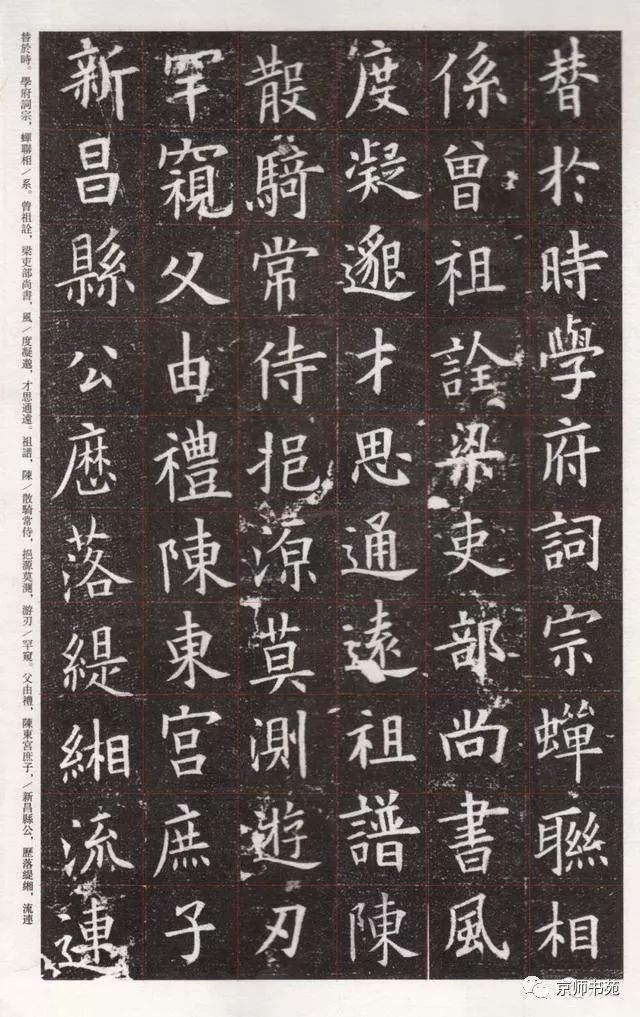 替於時學府詞宗蟬聯相
係曾祖詮梁吏部尚書風
度凝邈才思通遠祖譜陳
散騎常侍挹源莫測遊刃
罕窺父由禮陳東宮庶子
新昌縣公歷落緹緗流連
替於時。學府詞宗，蟬聯相／系。曾祖詮，梁吏部尚書，風／度凝邈，才思通遠。祖譜，陳／散騎常侍，挹源莫測，游刃／罕窺。父由禮，陳東宮庶子，／新昌縣公，歷落緹緗，流連
京师书苑